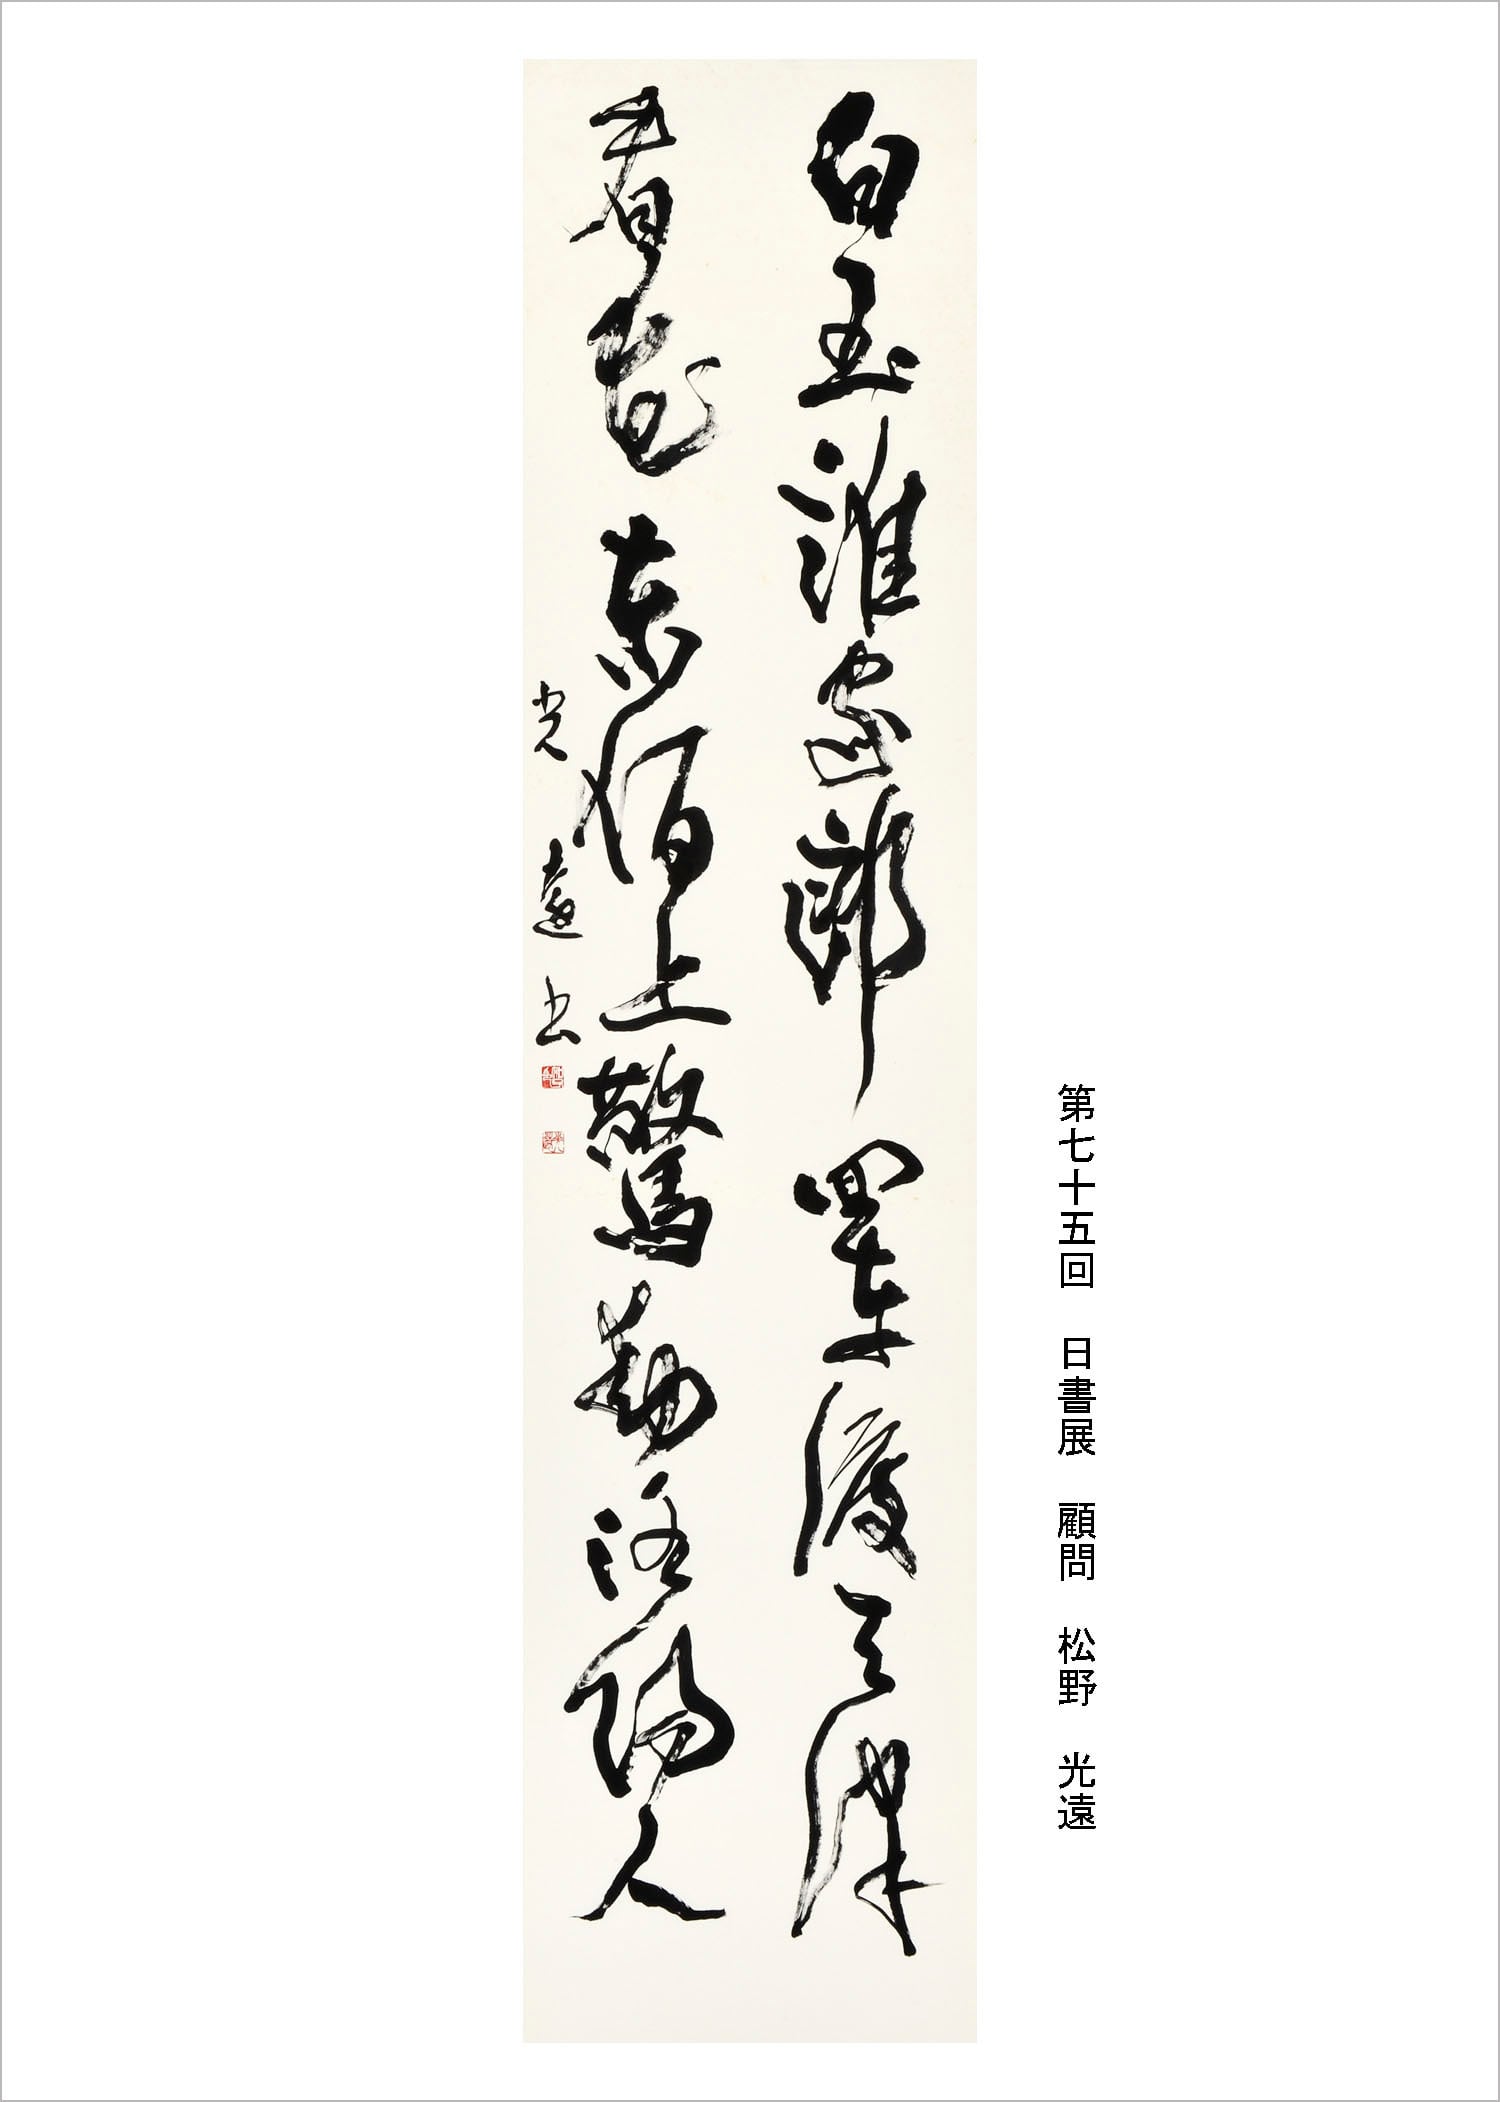 第七十五回 日書展 顧問 松野 光遠
白玉誰家郎 回車渡天津
看花東陌上 驚動洛陽人
光遠書